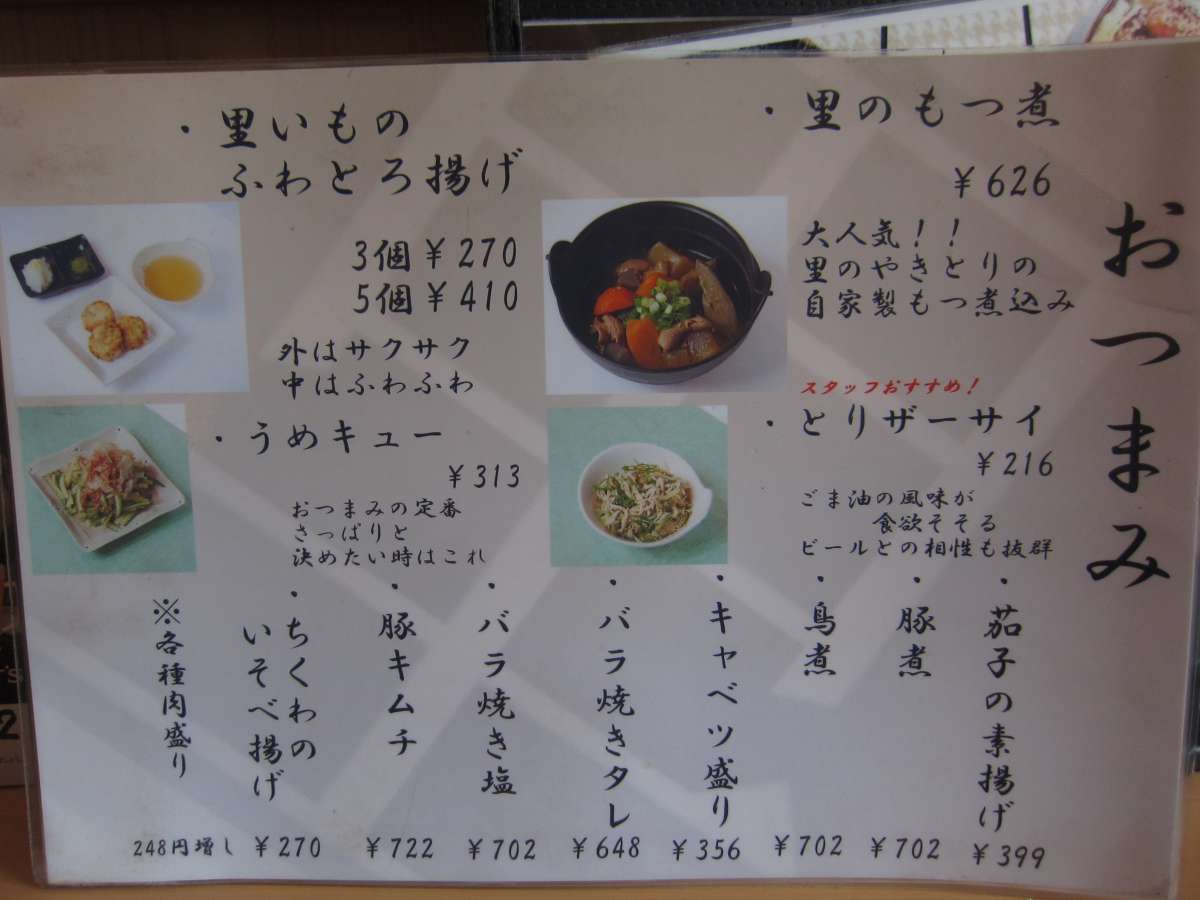 おつまみ
・里のもつ煮
￥626
大人気！！
里のやきとりの
自家製もつ煮込み
スタッフおすすめ！
・とりザーサイ
￥216
ごま油の風味が
食欲そそる
ビールとの相性も抜群
・里いもの
ふわとろ揚げ
3個￥270
5個￥410
外はサクサク
中はふわふわ
・うめキュー
￥313
おつまみの定番
さっぱりと
決めたい時はこれ
・茄子の素揚げ
￥399
・豚煮
￥702
・鳥煮
￥702
・キャベツ盛り
￥356
・バラ焼きタレ
￥648
・バラ焼き塩
￥702
・豚キムチ
￥722
・ちくわの
いそべ揚げ
￥270
※各種肉盛り
248円増し